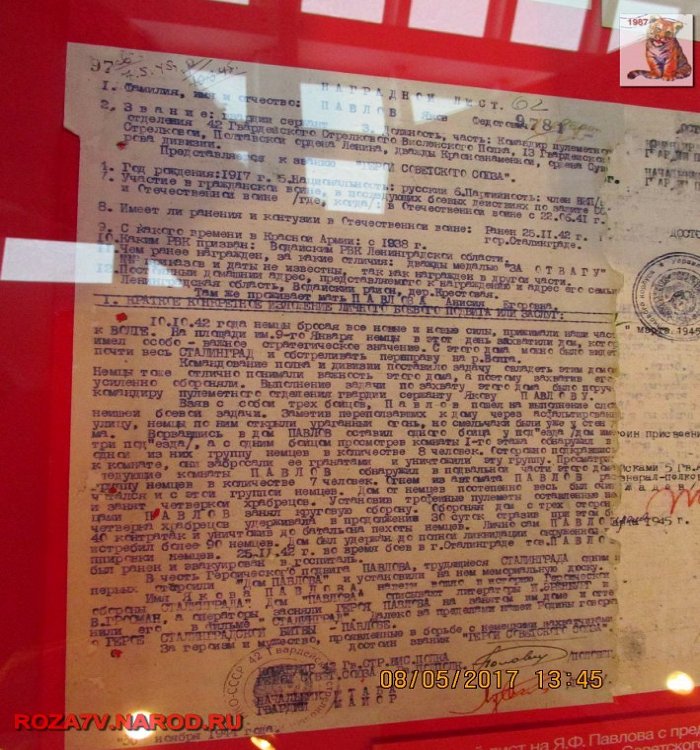 1987
97
4.5.45.
НАГРАДНОЙ ЛИСТ.
62
1. Фамилия, имя и отчество: ПАВЛОВ Яков Федотович
9781
2. Звание: гвардии сержант 3. Должность, часть: Командир пулеметного
отделения 42 Гвардейского Стрелкового Висленского Полка, 13 Гвардейской
Стрелковой, Полтавской ордена Ленина, Дважды Краснознаменной, ордена Суво
рова дивизии.
Представляется к званию "ГЕРОЙ СОВЕТСКОГО СОЮЗА".
4. Год рождения:1917 г. 5.Национальность: русский 6.Партийность: член ВКП/б
7. Участие в гражданской войне, в последующих боевых действиях по защите СС
и Отечественной войне /где, когда/: в Отечественной войне с 22.06.41 г.
8. Имеет ли ранения и контузии в Отечественной войне: Ранен 25.11.42 г.
гор.Сталинград.
9. С какого времени в Красной Армии: с 1938 г.
10.Каким РВК призван: Водайским РВК Ленинградской области.
11.Чем ранее награжден, за какие отличия: дважды медалью "ЗА ОТВАГУ"
приказов и даты не известны, так как награжден в другой части.
12.Постоянный домашний адрес, представляемого к награждению и адрес его семьи
Ленинградская область, Водайский район, дер.Крестовая.
Там же проживает мать ПАВЛОВА Анисия Егоровна.
1. КРАТКОЕ КОНКРЕТНОЕ ИЗЛОЖЕНИЕ ЛИЧНОГО БОЕВОГО ПОДВИГА ИЛИ ЗАСЛУГ:
10.10.42 года немцы бросая все новые и новые силы, прижимали наши част
к ВОЛГЕ. На площади им.9-го Января немцы в этот день захватили дом, котор
имел особо-важное стратегическое значение. С этого дома можно было видет
почти весь СТАЛИНГРАД и обстреливать переправу на р.Волга.
Командование полка и дивизии поставило задачу овладеть этим домом
Немцы тоже отлично понимали важность этого дома, а поэтому захватив его
усиленно обороняли. Выполнение задачи по захвату этого дома было пору
командиру пулеметного отделения гвардии сержанту Якову ПАВЛОВУ.
Взяв с собой трех бойцов, Павлов повел на выполнение сло
нейшей боевой задачи. Заметив переползавших к дому через асфальтирован
улицу, немцы по ним открыли ураганный огонь, но смельчаки были уже у стен
ма. Ворвавшись в дом ПАВЛОВ оставил одного бойца у под'езда /дом им
три под'езда/, а с одним бойцом просмотрев комнаты 1-го этажа обнаружил в
одной из них группу немцев в количестве 8 человек. Осторожно подкравшис
к комнате, они забросали ее гранатами и уничтожили эту группу. Просматри
ледующие комнаты ПАВЛОВ обнаружил в подвальной части этого дома
группу немцев в количестве 7 человек. Огнем из автомата ПАВЛОВ рас
читался и с этой группой немцев. Дом от немцев постепенно весь был очи
и занят четверкой храбрецов. Установив трофейные пулеметы оставленные не
цами ПАВЛОВ занял круговую оборону. Обороняя дом с трех сторон
четверка храбрецов удерживала в продолжение 30 суток отразив при этом б
40 контратак и уничтожив до батальона пехоты немцев. Лично сам ПАВЛО
истребил более 90 немцев. Дом был удержан до полной ликвидации окруженной г
ппировки немцев. 25.11.42 г. во время боев в г.Сталинграде тов.ПАВЛО
был ранен и эвакуирован в госпиталь.
В честь Героического подвига ПАВЛОВА, трудящиеся СТАЛИНГРАДА одним
первых отстроили "ДОМ ПАВЛОВА" и установили на нем мемориальную доску.
Имя Якова ПАВЛОВА навеки вошло в историю Героической
обороны СТАЛИНГРАДА. Дом "ПАВЛОВА" описывают литераторы
В.ГРОСМАН, а операторы засняли ГЕРОЯ ПАВЛОВА на занятом им доме и отте
нили его в фильме "СТАЛИНГРАД". Далеко за пределами нашей Родины говоря
о ГЕРОЕ СТАЛИНГРАДСКОЙ БИТВЫ - ПАВЛОВЕ.
За героизм и мужество, проявленные в борьбе с немецкими захватчиками
достоин звания "ГЕРОЙ СОВЕТСКОГО СОЮЗА".
КОМАНДИР 42 ГВ.СТР.ВИС.ПОЛКА
НАЧАЛЬНИК ШТАБА
ГВАРДИИ МАЙОР
ноября 1944 года.
ДОСТО
" марта 1945
оин присвоени
йсками 5 Гва
енерал-полко
1945 г.
08/05/2017 13:45
ROZA7V.NAROD.RU
ист на Я.Ф. Павлова с пре